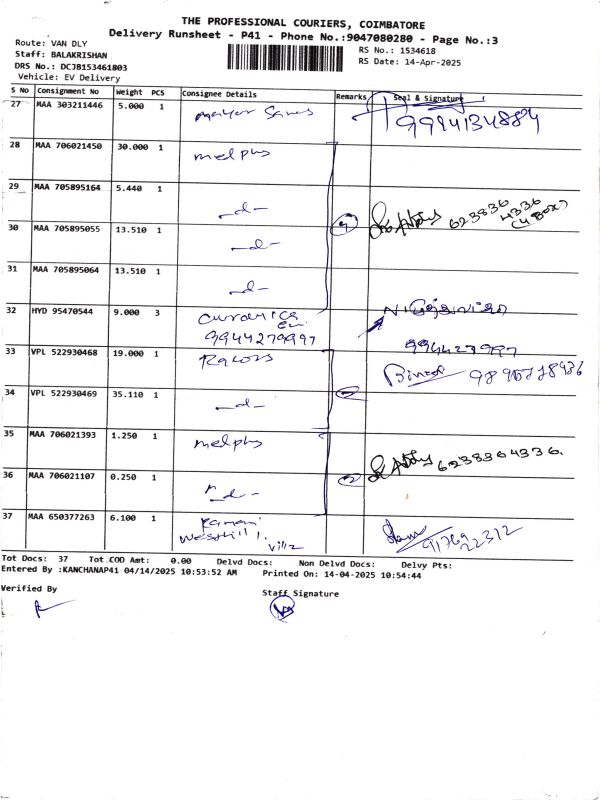 THE PROFESSIONAL COURIERS, COIMBATORE
Delivery Runsheet - P41 - Phone No.:9047080280 - Page No.:3
Route: VAN DLY
Staff: BALAKRISHAN
RS No.: 1534618
DRS No.: DCJB153461803
RS Date: 14-Apr-2025
Vehicle: EV Delivery
S No Consignment No Weight PCS Consignee Details Remarks Seal & Signature
27 MAA 303211446 5.000 1
9994134884
28 MAA 706021450 30.000 1 medplus
29 MAA 705895164 5.440 1 -d-
623836
4336
(4 Box)
30 MAA 705895055 13.510 1 -d- 4
31 MAA 705895064 13.510 1 -d-
32 HYD 95470544 9.000 3
9944279997
33 VPL 522930468 19.000 1
994427997
34 VPL 522930469 35.110 1 -d-
35 MAA 706021393 1.250 1 medplus
6238364336.
36 MAA 706021107 0.250 1 -d- 2
3
37 MAA 650377263 6.100 1
villa
9176922312
Tot Docs: 37 Tot COD Amt: 0.00 Delvd Docs: Non Delvd Docs: Delvy Pts:
Entered By :KANCHANAP41 04/14/2025 10:53:52 AM Printed On: 14-04-2025 10:54:44
Verified By
Staff Signature